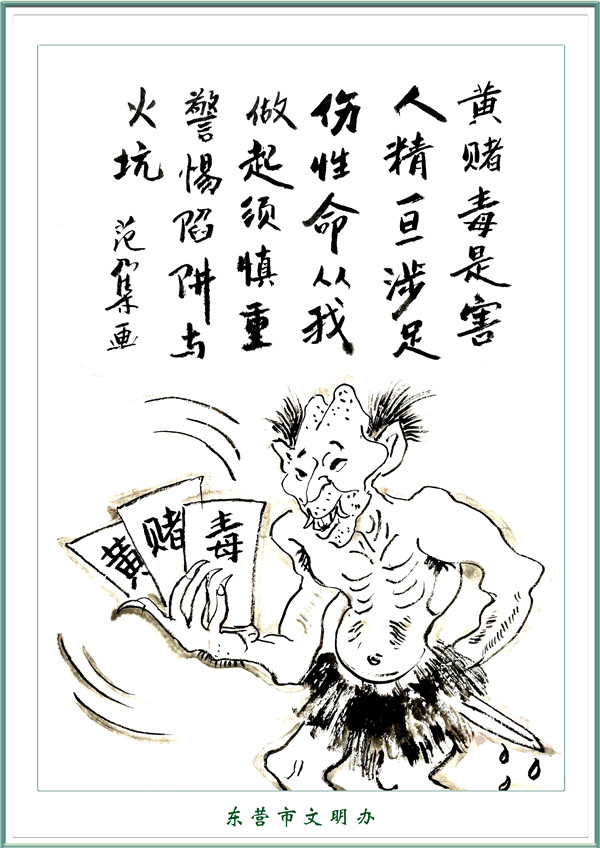 黄赌毒是害
人精一旦涉足
伤性命从我
做起须慎重
警惕陷阱与
火坑
范 画
黄
赌
毒
东营市文明办